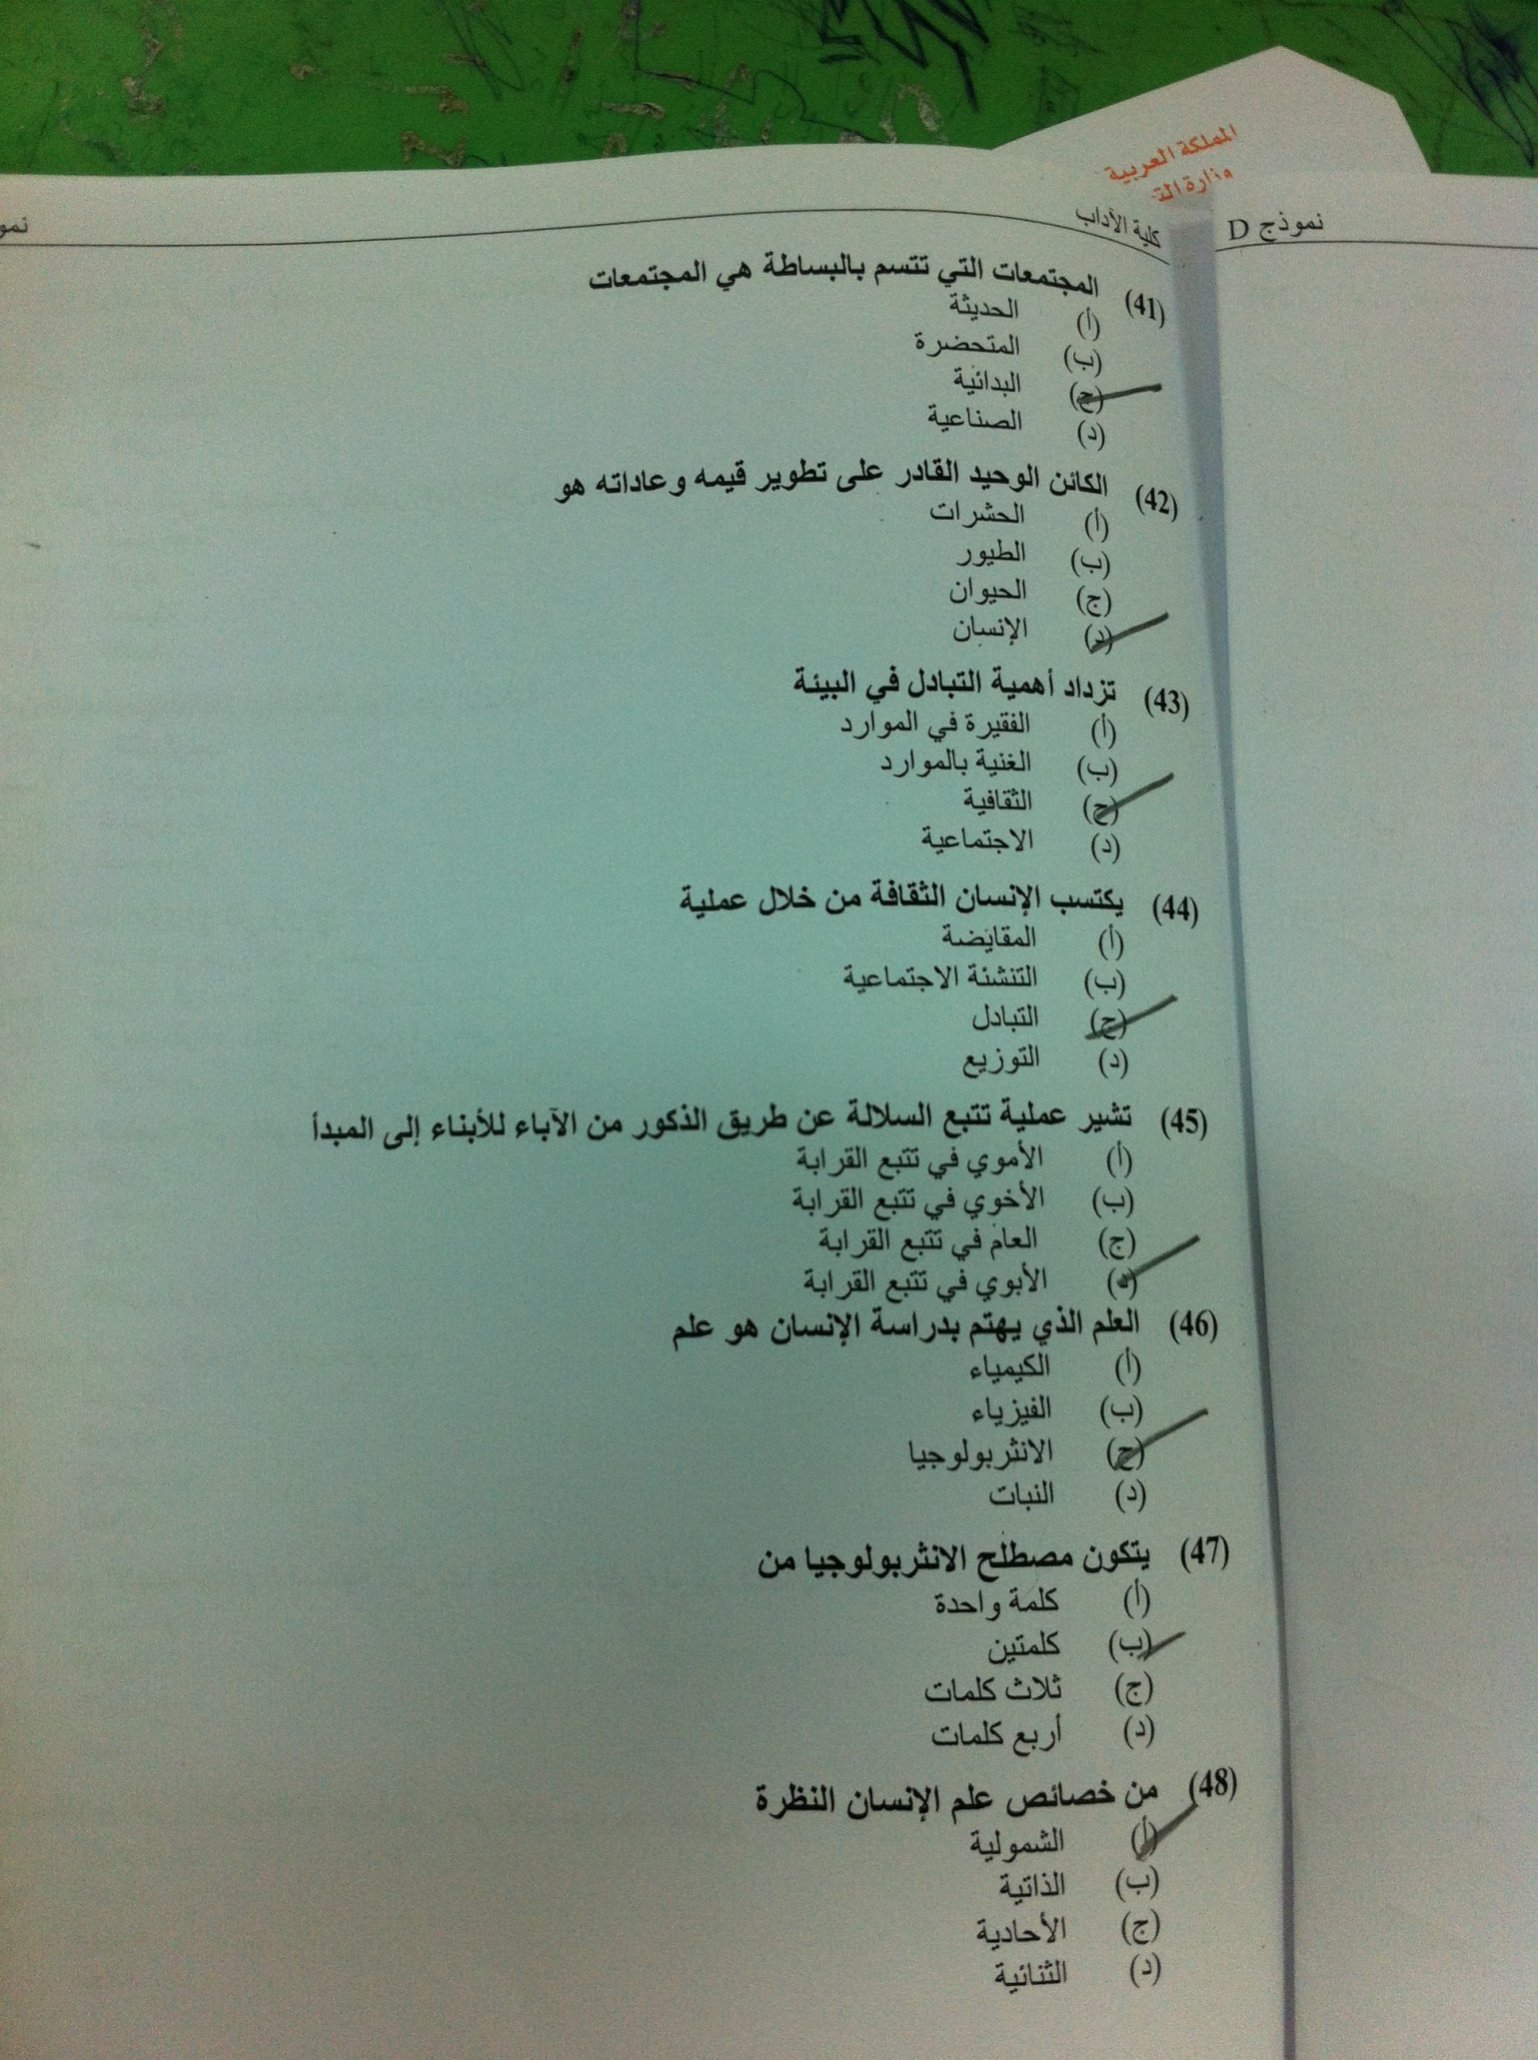 المملكة العربية
وزارة الت
كلية الآداب
نموذج D
نمو
(41) المجتمعات التي تتسم بالبساطة هي المجتمعات
(أ) الحديثة
(ب) المتحضرة
(ج) البدائية
(د) الصناعية
(42) الكائن الوحيد القادر على تطوير قيمه وعاداته هو
(أ) الحشرات
(ب) الطيور
(ج) الحيوان
(د) الإنسان
(43) تزداد أهمية التبادل في البيئة
(أ) الفقيرة في الموارد
(ب) الغنية بالموارد
(ج) الثقافية
(د) الاجتماعية
(44) يكتسب الإنسان الثقافة من خلال عملية
(أ) المقايضة
(ب) التنشئة الاجتماعية
(ج) التبادل
(د) التوزيع
(45) تشير عملية تتبع السلالة عن طريق الذكور من الآباء للأبناء إلى المبدأ
(أ) الأموي في تتبع القرابة
(ب) الأخوي في تتبع القرابة
(ج) العام في تتبع القرابة
(د) الأبوي في تتبع القرابة
(46) العلم الذي يهتم بدراسة الإنسان هو علم
(أ) الكيمياء
(ب) الفيزياء
(ج) الانثربولوجيا
(د) النبات
(47) يتكون مصطلح الانثربولوجيا من
(أ) كلمة واحدة
(ب) كلمتين
(ج) ثلاث كلمات
(د) أربع كلمات
(48) من خصائص علم الإنسان النظرة
(أ) الشمولية
(ب) الذاتية
(ج) الأحادية
(د) الثنائية